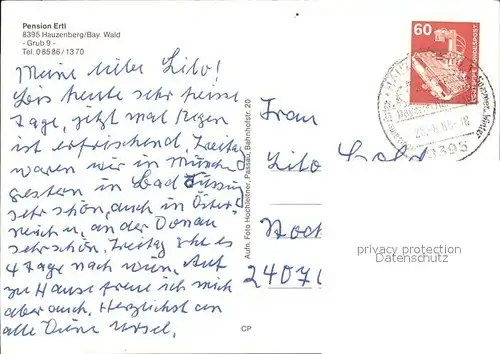 Pension Ertl
8395 Hauzenberg/Bay. Wald
- Grub 9 -
Tel. 0 85 86 / 13 70
Meine liebe Lilo!
Bis heute sehr heisse
Tage, jetzt mal Regen
ist erfrischend, Freitag
waren wir in
gestern in Bad Füssing
sehr schön, auch in Öster-
reich u. an der Donau
sehr schön. Freitag geht es
4 Tage nach Wien. Auf
zu Hause freue ich mich
aber auch. Herzlichst an
alle Deine Ursel.
CP
Aufn. Foto Hochleitner, Passau, Bahnhofstr. 20
60
DEUTSCHE BUNDESPOST
8395
Frau
Lilo
24071
privacy protection
Datenschutz